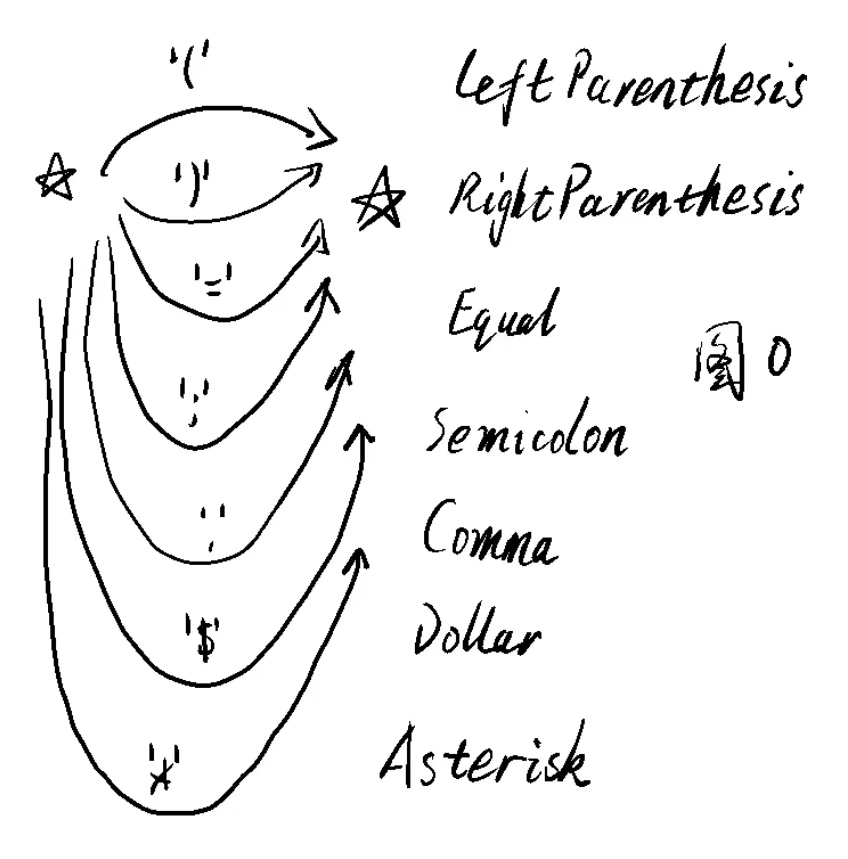 '(' LeftParenthesis
')' RightParenthesis
'=' Equal
图 0
';' Semicolon
',' Comma
'$' Dollar
'*' Asterisk